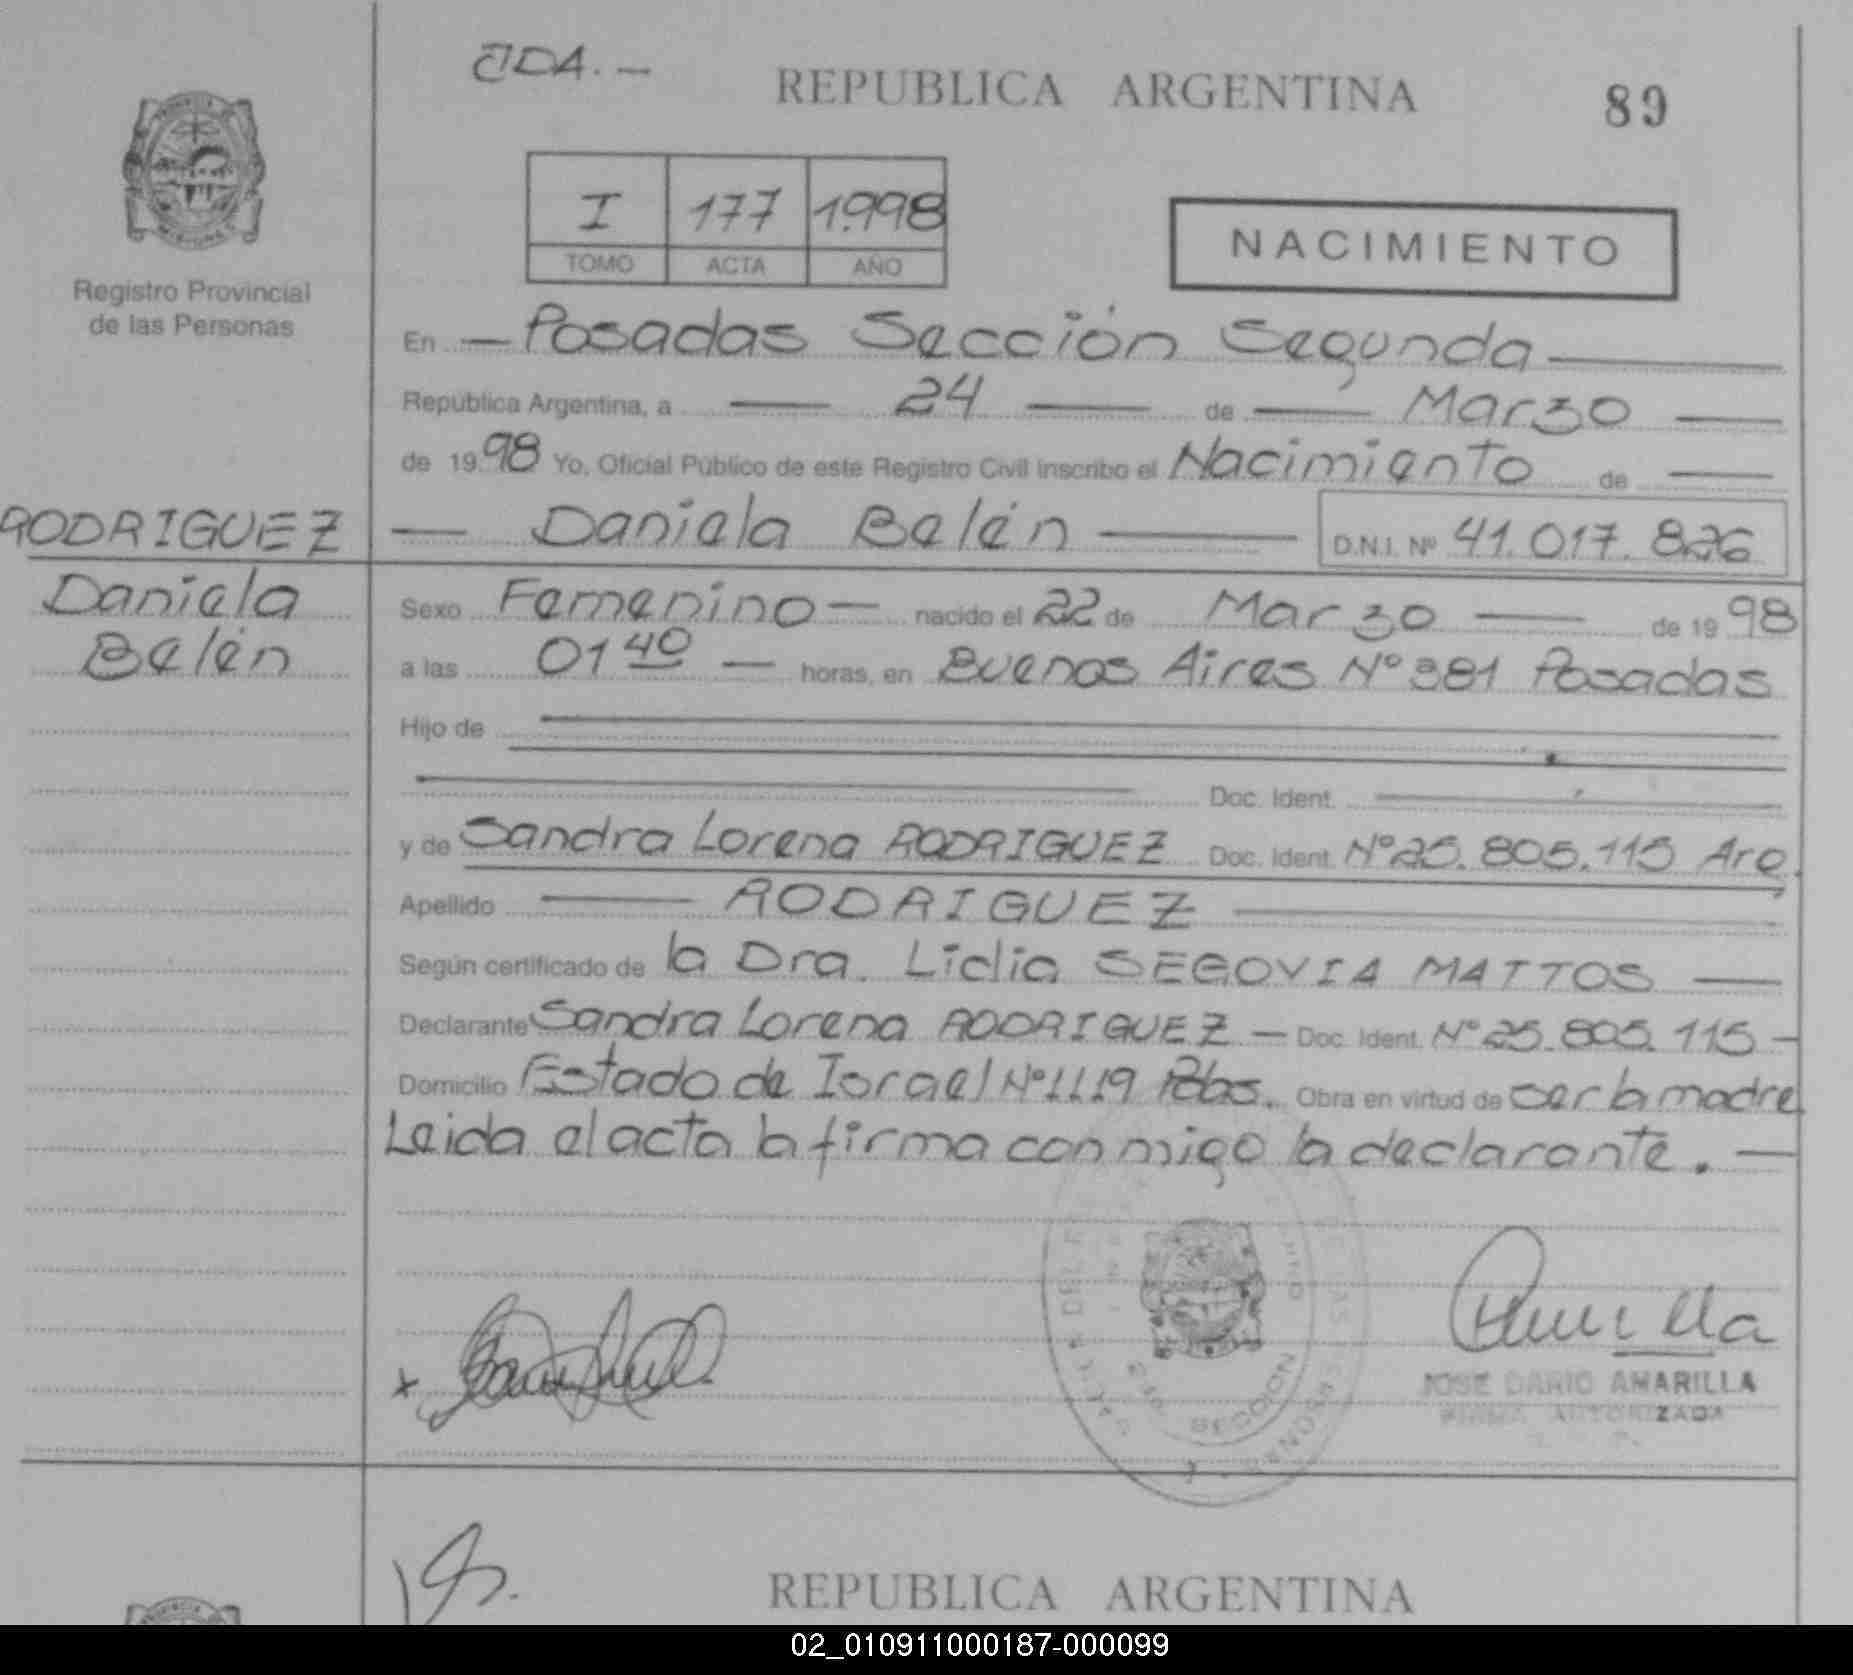 JDA. -
REPUBLICA ARGENTINA
89
I 177 1.998
TOMO ACTA AÑO
NACIMIENTO
MISIONES
Registro Provincial
de las Personas
En Posadas Sección Segunda
República Argentina, a 24 de Marzo
de 19 98 Yo, Oficial Público de este Registro Civil inscribo el Nacimiento de
RODRIGUEZ
Daniela
Belén
Daniela Belén D.N.I. Nº 41.017.826
Sexo Femenino nacido el 22 de Marzo de 19 98
a las 01 40 horas, en Buenos Aires Nº 381 Posadas
Hijo de
Doc. Ident.
y de Sandra Lorena RODRIGUEZ Doc. Ident. Nº 25.805.115 Arg.
Apellido RODRIGUEZ
Según certificado de la Dra. Lidia SEGOVIA MATTOS
Declarante Sandra Lorena RODRIGUEZ - Doc. Ident. Nº 25.805.115 -
Domicilio Estado de Israel Nº 1119 Pdas. Obra en virtud de ser la madre
Leida el acta la firma conmigo la declarante. -
JOSE DARIO AMARILLA
FIRMA AUTORIZADA
REPUBLICA ARGENTINA
02_010911000187-000099